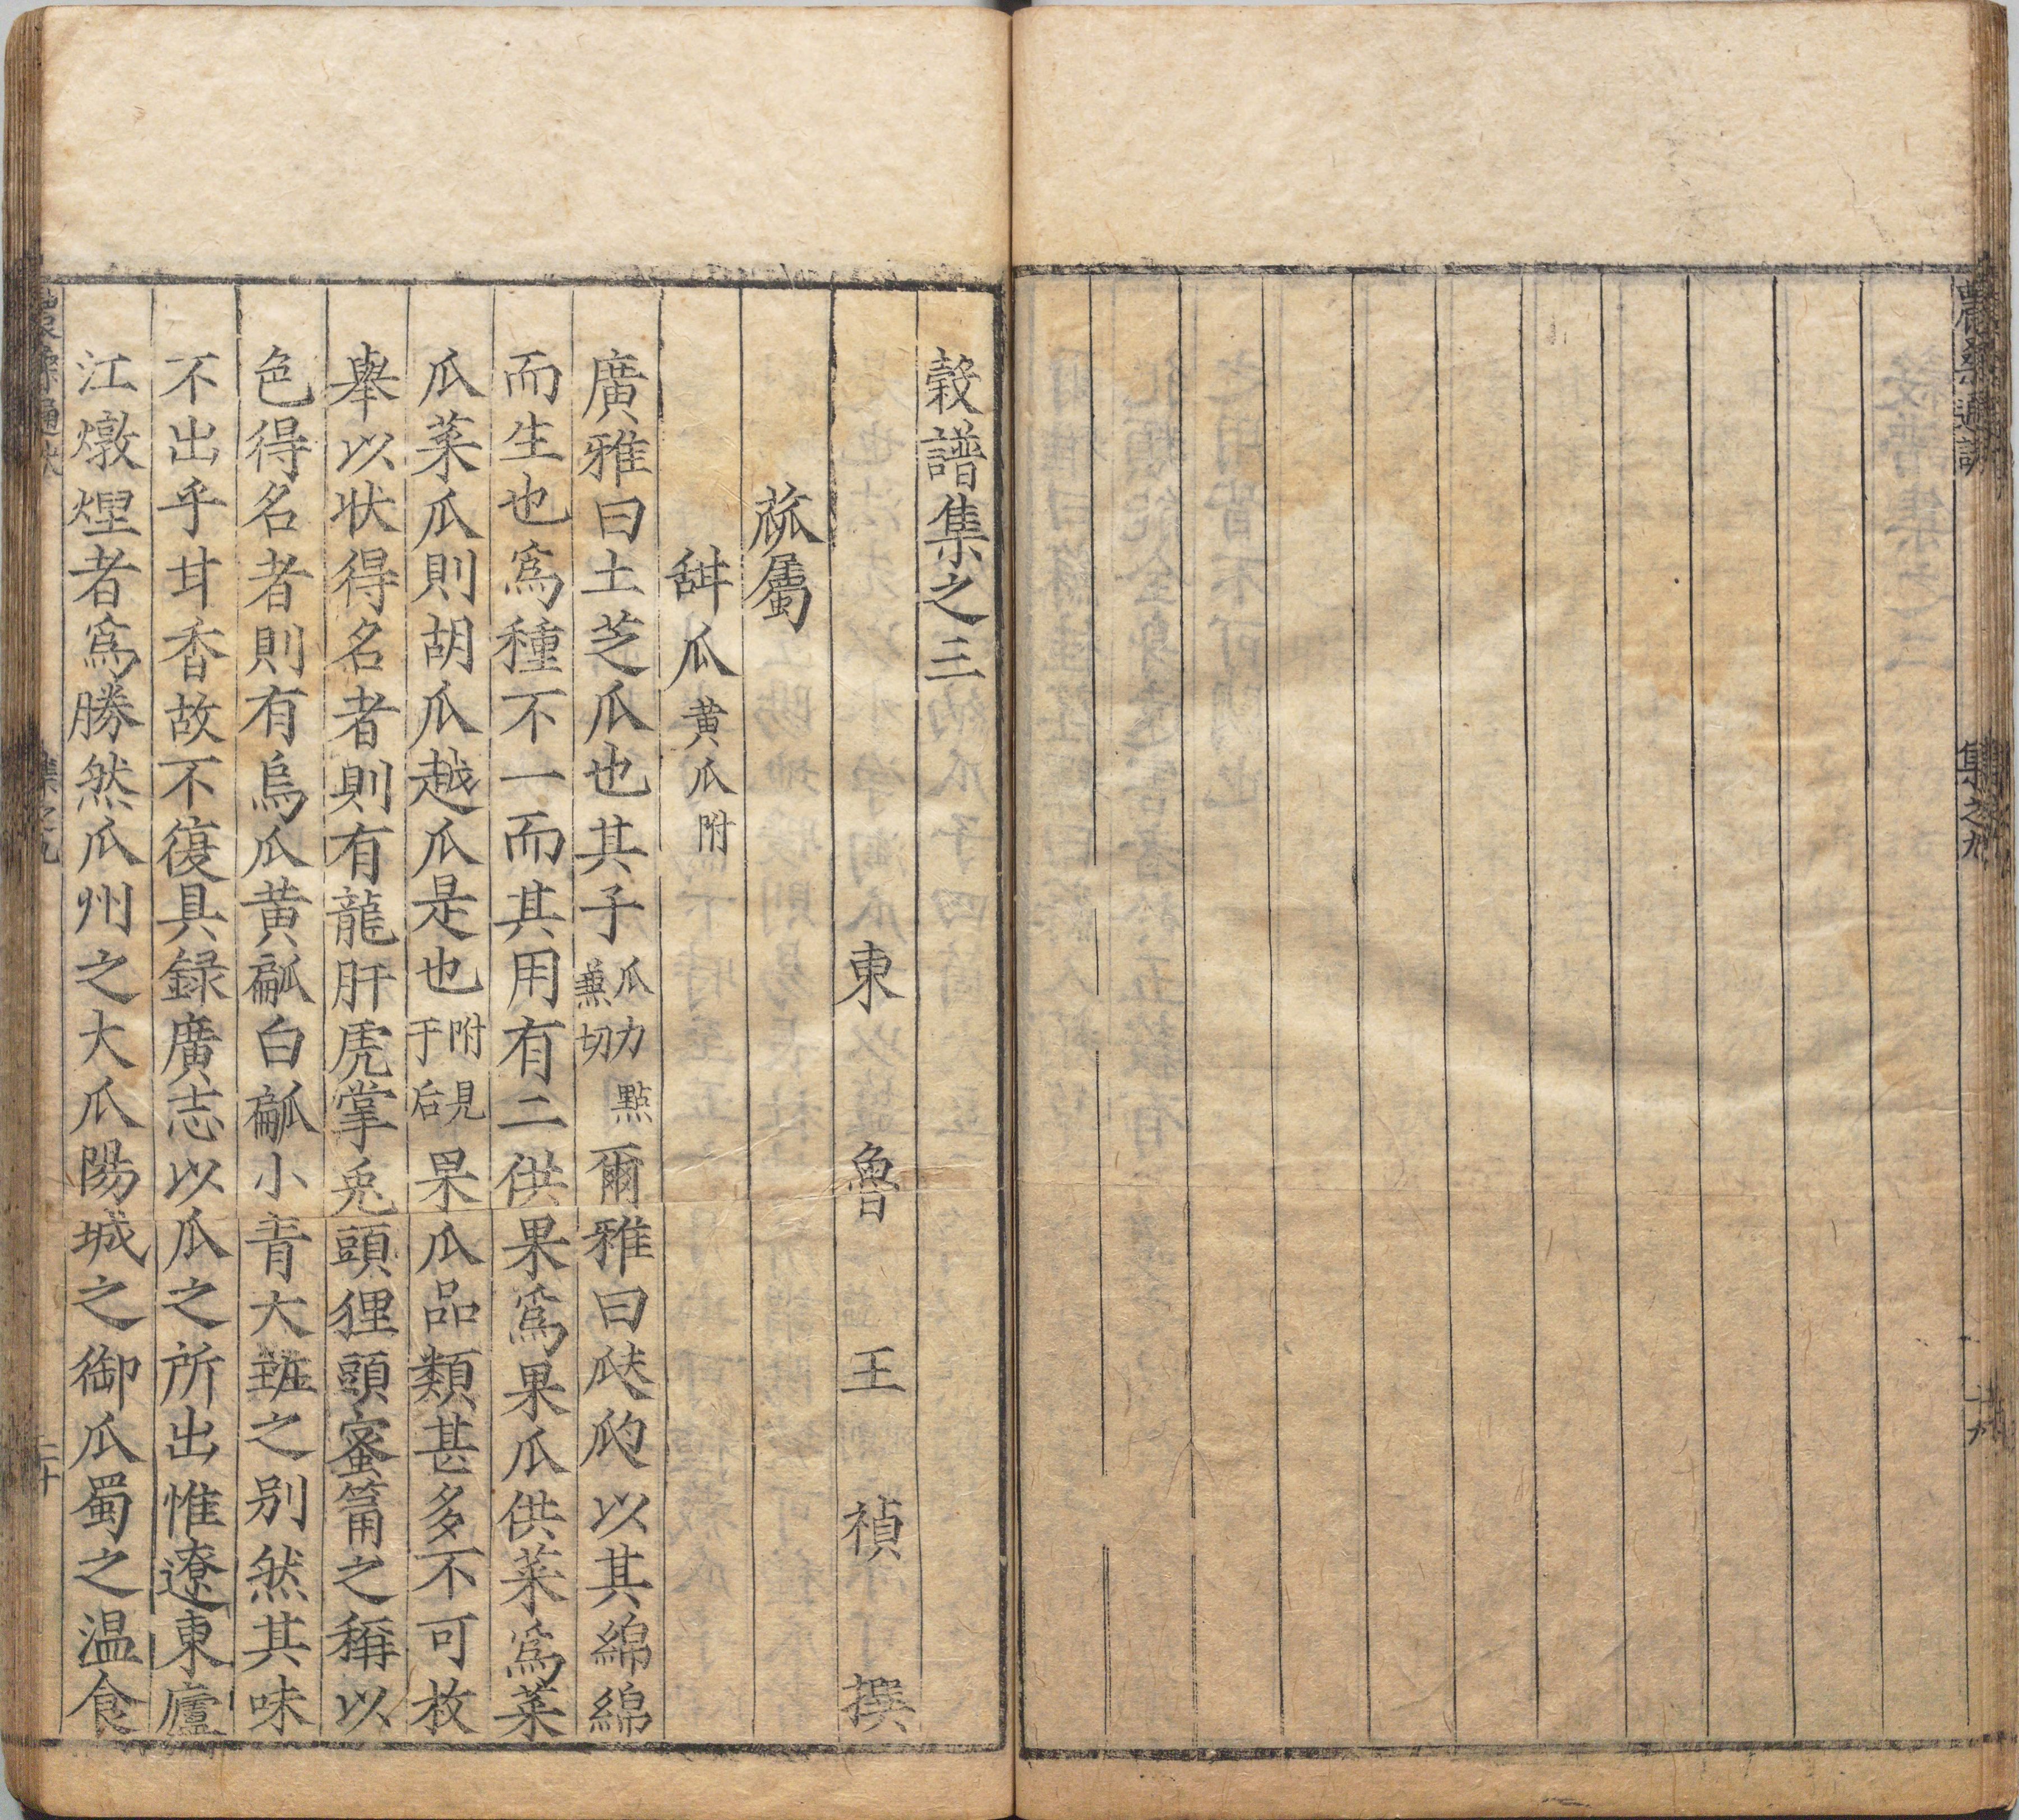 農桑通訣 集之九 十九
穀譜集之三
東魯王禎撰
蓏屬
甜瓜 黄瓜附
廣雅曰土芝瓜也其子㼓力點切爾雅曰瓞瓝以其綿綿
而生也為種不一而其用有二供果為果瓜供菜為菜
瓜菜瓜則胡瓜越瓜是也附見于后果瓜品類甚多不可枚
舉以状得名者則有龍肝虎掌兎頭狸頭蜜筩之稱以
色得名者則有烏瓜黄㼐白㼐小青大班之别然其味
不出乎甘香故不復具録廣志以瓜之所出惟遼東廬
江燉煌者為勝然瓜州之大瓜陽城之御瓜蜀之温食
農桑通訣 集之九 二十